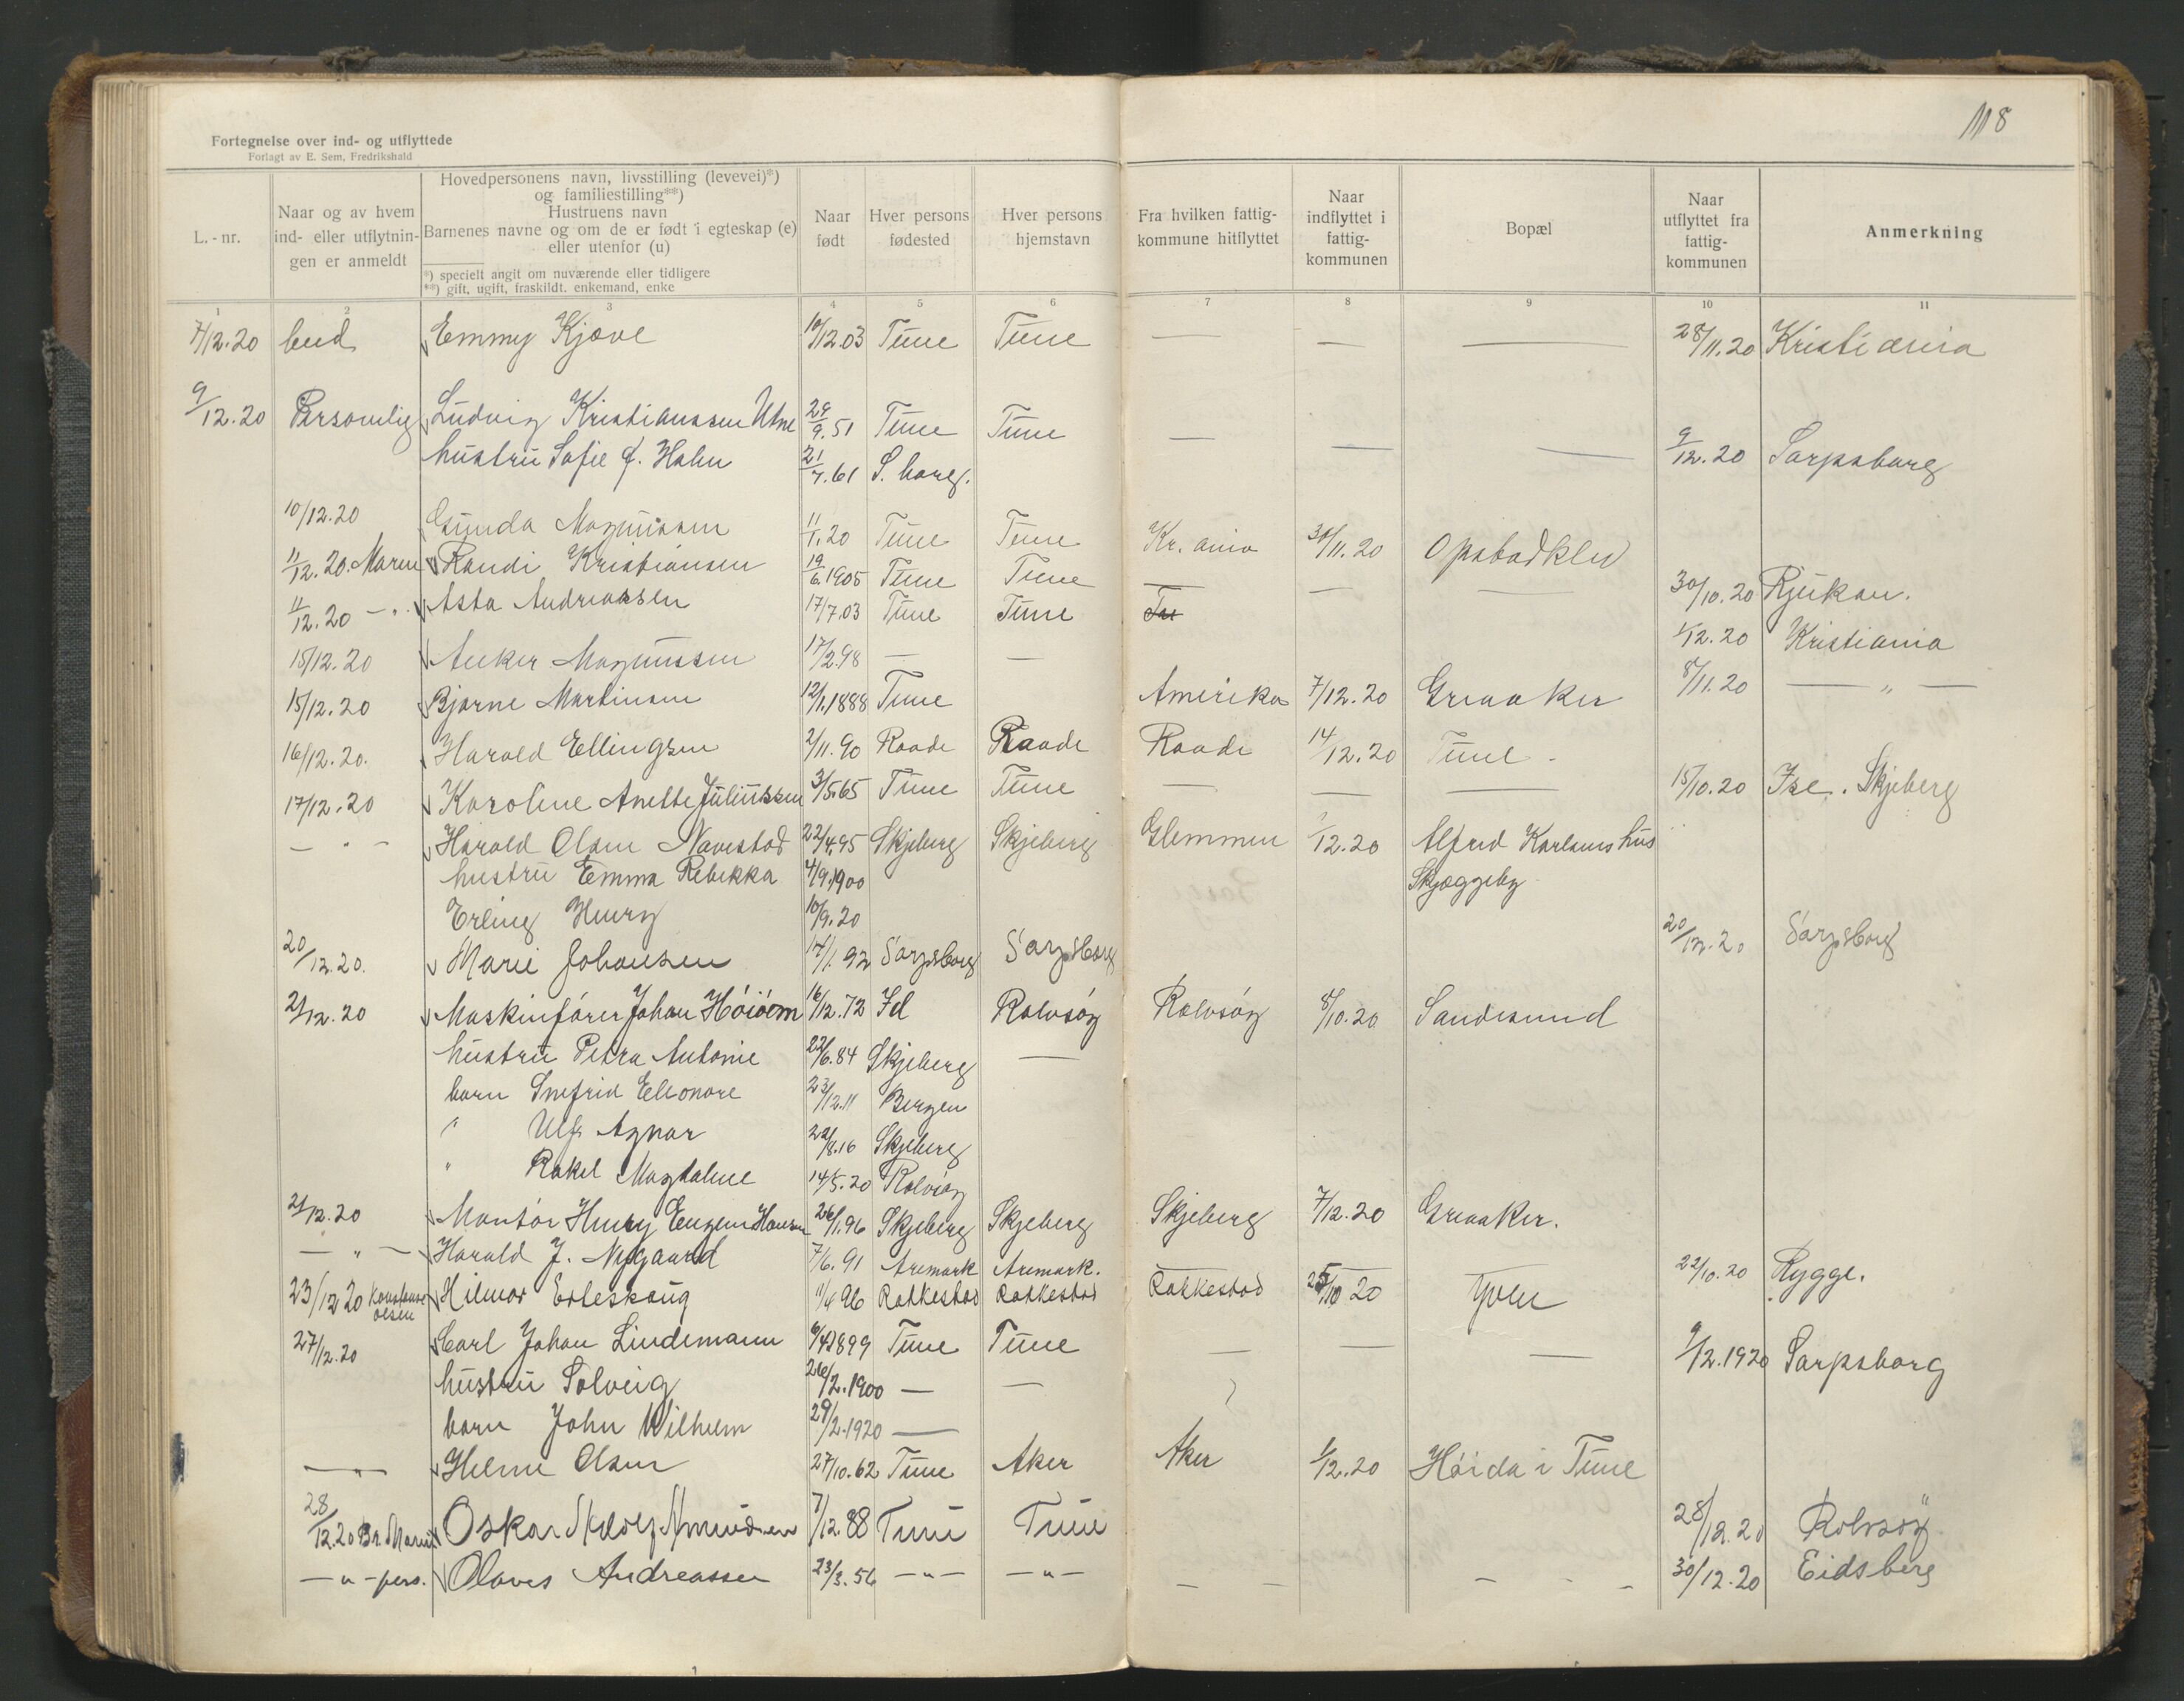 118
Fortegnelse over ind- og utflyttede
Forlagt av E. Sem, Fredrikshald
L.-nr.
Naar og av hvem ind- eller utflytnin- gen er anmeldt
Hovedpersonens navn, livsstilling (levevei)*) og familiestilling**) Hustruens navn Barnenes navne og om de er født i egteskap (e) eller utenfor (u)
*) specielt angit om nuværende eller tidligere
**) gift, ugift, fraskildt, enkemand, enke
Naar født
Hver persons fødested
Hver persons hjemstavn
Fra hvilken fattig- kommune hitflyttet
Naar indflyttet i fattig- kommunen
Bopæl
Naar utflyttet fra fattig- kommunen
Anmerkning
1 2 3 4 5 6 7 8 9 10 11
7/12.20 bud Emmy Kjøve 10/12.03 Tune Tune — — — 28/11.20 Kristiania
9/12.20 Personlig Ludvig Kristianssen Utne 29/9.51 Tune Tune — — — 9/12.20 Sarpsborg
hustru Sofie f. Holm 21/7.61 S.borg.
10/12.20 Gunda Magnussen 11/1.20 Tune Tune Kr.ania 30/11.20 Opstadklev
11/12.20. Maren Randi Kristiansen 19/6.1905 Tune Tune — — — 30/10.20 Rjukan.
11/12.20 — " — Asta Andreassen 17/7.03 Tune Tune 1/12.20 Kristiania
15/12.20 Anker Magnussen 17/2.98 — — 8/11.20 — " —
15/12.20 Bjarne Martinsen 12/1.1888 Tune Amerika 7/12.20 Greaaker
16/12.20. Harald Ellingsen 2/11.90 Raade Raade Raade 14/12.20 Tune
17/12.20 Karoline Anette Juliussen 3/5.65 Tune Tune — — — 15/10.20 Ise. Skjeberg
— " — Harald Olsen Navestad 22/4.95 Skjeberg Skjeberg Glemmen 1/12.20 Alfred Karlsens hus
hustru Emma Rebekka 4/9.1900 Skjæggeby
Erling Henry 10/9.20
20/12.20. Marie Johansen 17/1.92 Sarpsborg Sarpsborg 20/12.20 Sarpsborg
21/12.20 Maskinfører Johan Høiöem 16/12.72 Id Rolvsöy Rolvsöy 8/10.20 Sandesund
hustru Petra Antonie 22/6.84 Skjeberg —
barn Snefrid Eleonore 23/12.11 Bergen
" Ulf Agnar 22/8.16 Skjeberg
" Rakel Magdalene 14/5.20 Rolvsøy
21/12.20 Montör Henry Eugen Hansen 26/1.96 Skjeberg Skjeberg Skjeberg 7/12.20 Greaaker.
— " — Harald J. Nygaard 7/6.91 Aremark Aremark. — — — 22/10.20 Rygge.
23/12 20 Konstanse Olsen Hilmar Erteskoug 11/4 96 Rakkestad Rakkestad Rakkestad 25/10 20 Yven
27/12.20 Carl Johan Lindemann 6/4.1899 Tune Tune — — — 9/12.1920 Sarpsborg
hustru Solveig 26/2.1900 — —
barn John Wilhelm 29/2.1920 —
— " — Helene Olsen 27/10.62 Tune Aker Aker 1/12.20 Høida i Tune
28/12.20 Oskar Adolf Amundsen 7/12.88 Tune Tune 28/12.20 Rolvsøy
— " — pers. Olaves Andreassen 23/3.56 — " — — " — — — — — — 30/12.20 Eidsberg